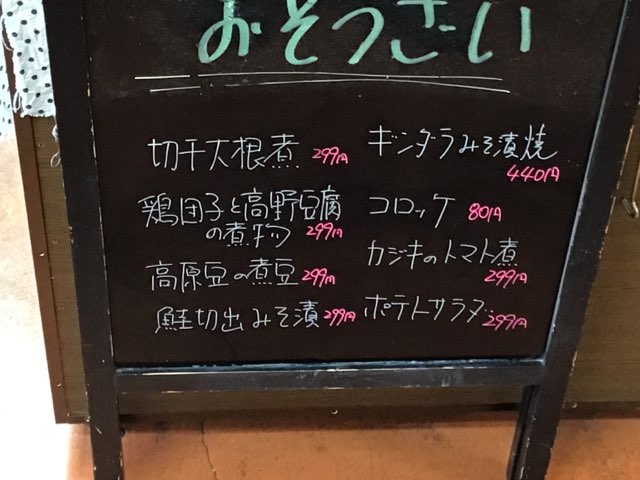 おそうざい
切干大根煮 299円
鶏団子と高野豆腐
の煮物 299円
高原豆の煮豆 299円
鮭切出みそ漬 299円
ギンダラみそ漬焼
440円
コロッケ 80円
カジキのトマト煮
299円
ポテトサラダ 299円